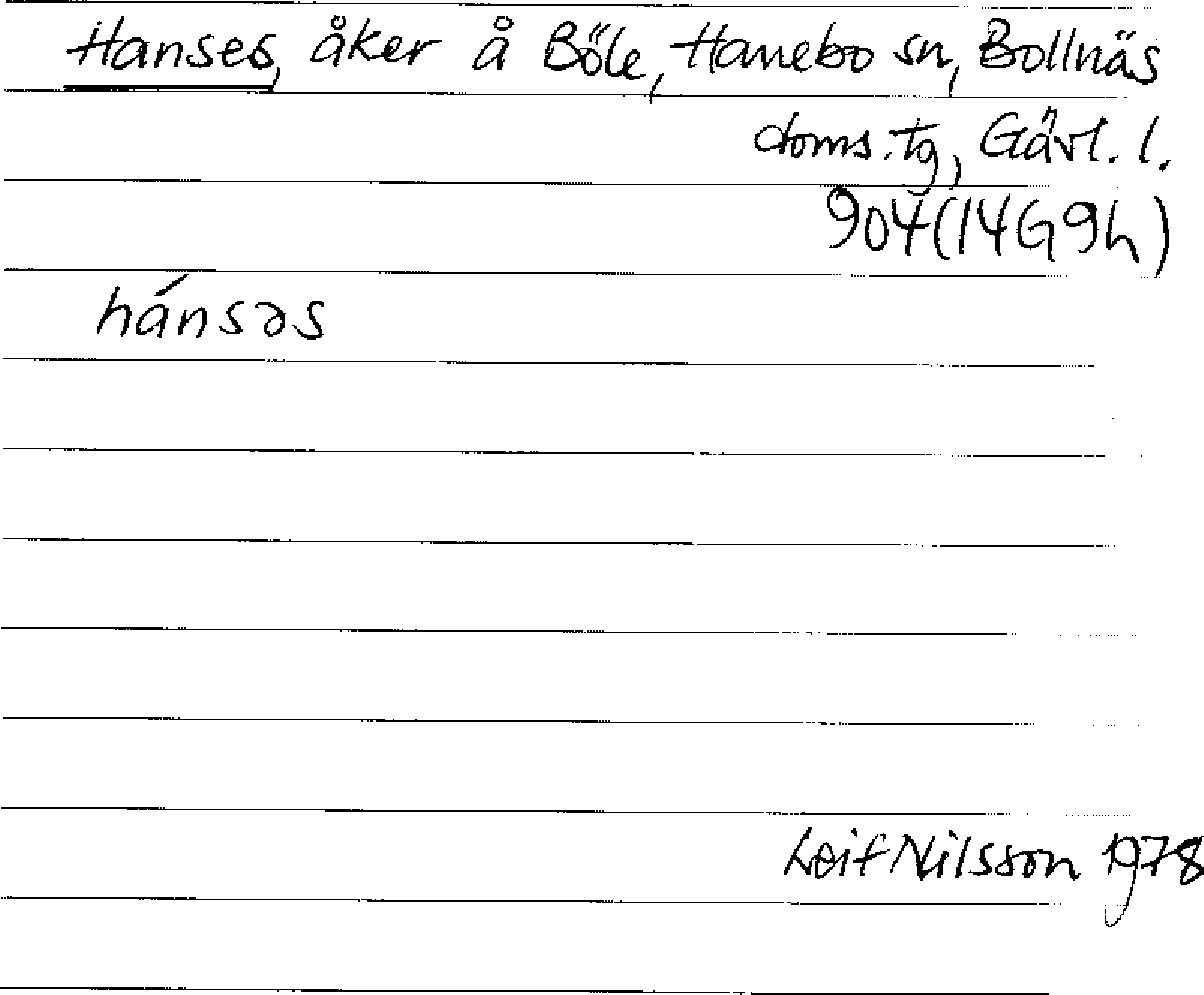 Hanses, åker å Böle, Hanebo sn, Bollnäs
doms.tg, Gävl. l.
904 (14G9h)
hánsəs
Leif Nilsson 1978